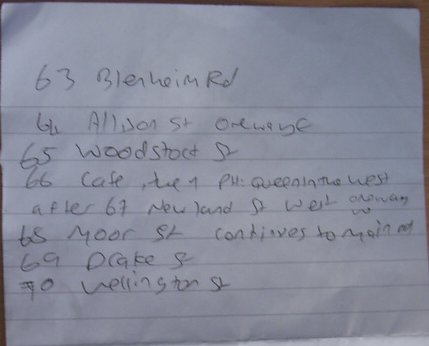 63 Blenheim Rd
64 Allison St oneway
65 Woodstock St
66 Cafe, the PH: Queen In the West
after 67 Newland St West oneway
68 Moor St continues to main rd
69 Drake St
70 Wellington St